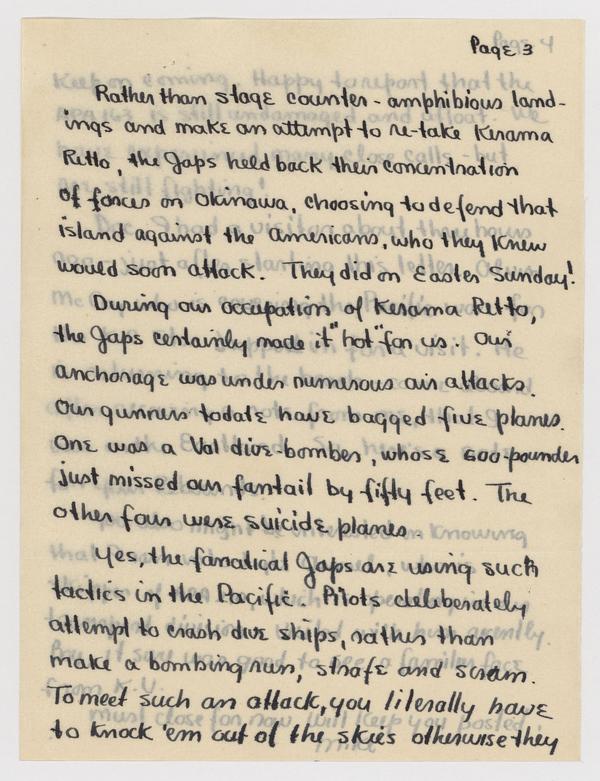 Page 3
Rather than stage counter-amphibious land-
ings and make an attempt to re-take Kerama
Retto, the Japs held back their concentration
of forces on Okinawa, choosing to defend that
island against the Americans, who they knew
would soon attack. They did on Easter Sunday!
During our occupation of Kerama Retto,
the Japs certainly made it "hot" for us. Our
anchorage was under numerous air attacks.
Our gunners to date have bagged five planes.
One was a Val dive-bomber, whose 600-pounder
just missed our fantail by fifty feet. The
other four were suicide planes.
Yes, the fanatical Japs are using such
tactics in the Pacific. Pilots deliberately
attempt to crash dive ships, rather than
make a bombing run, strafe and scram.
To meet such an attack, you literally have
to knock 'em out of the skies otherwise they